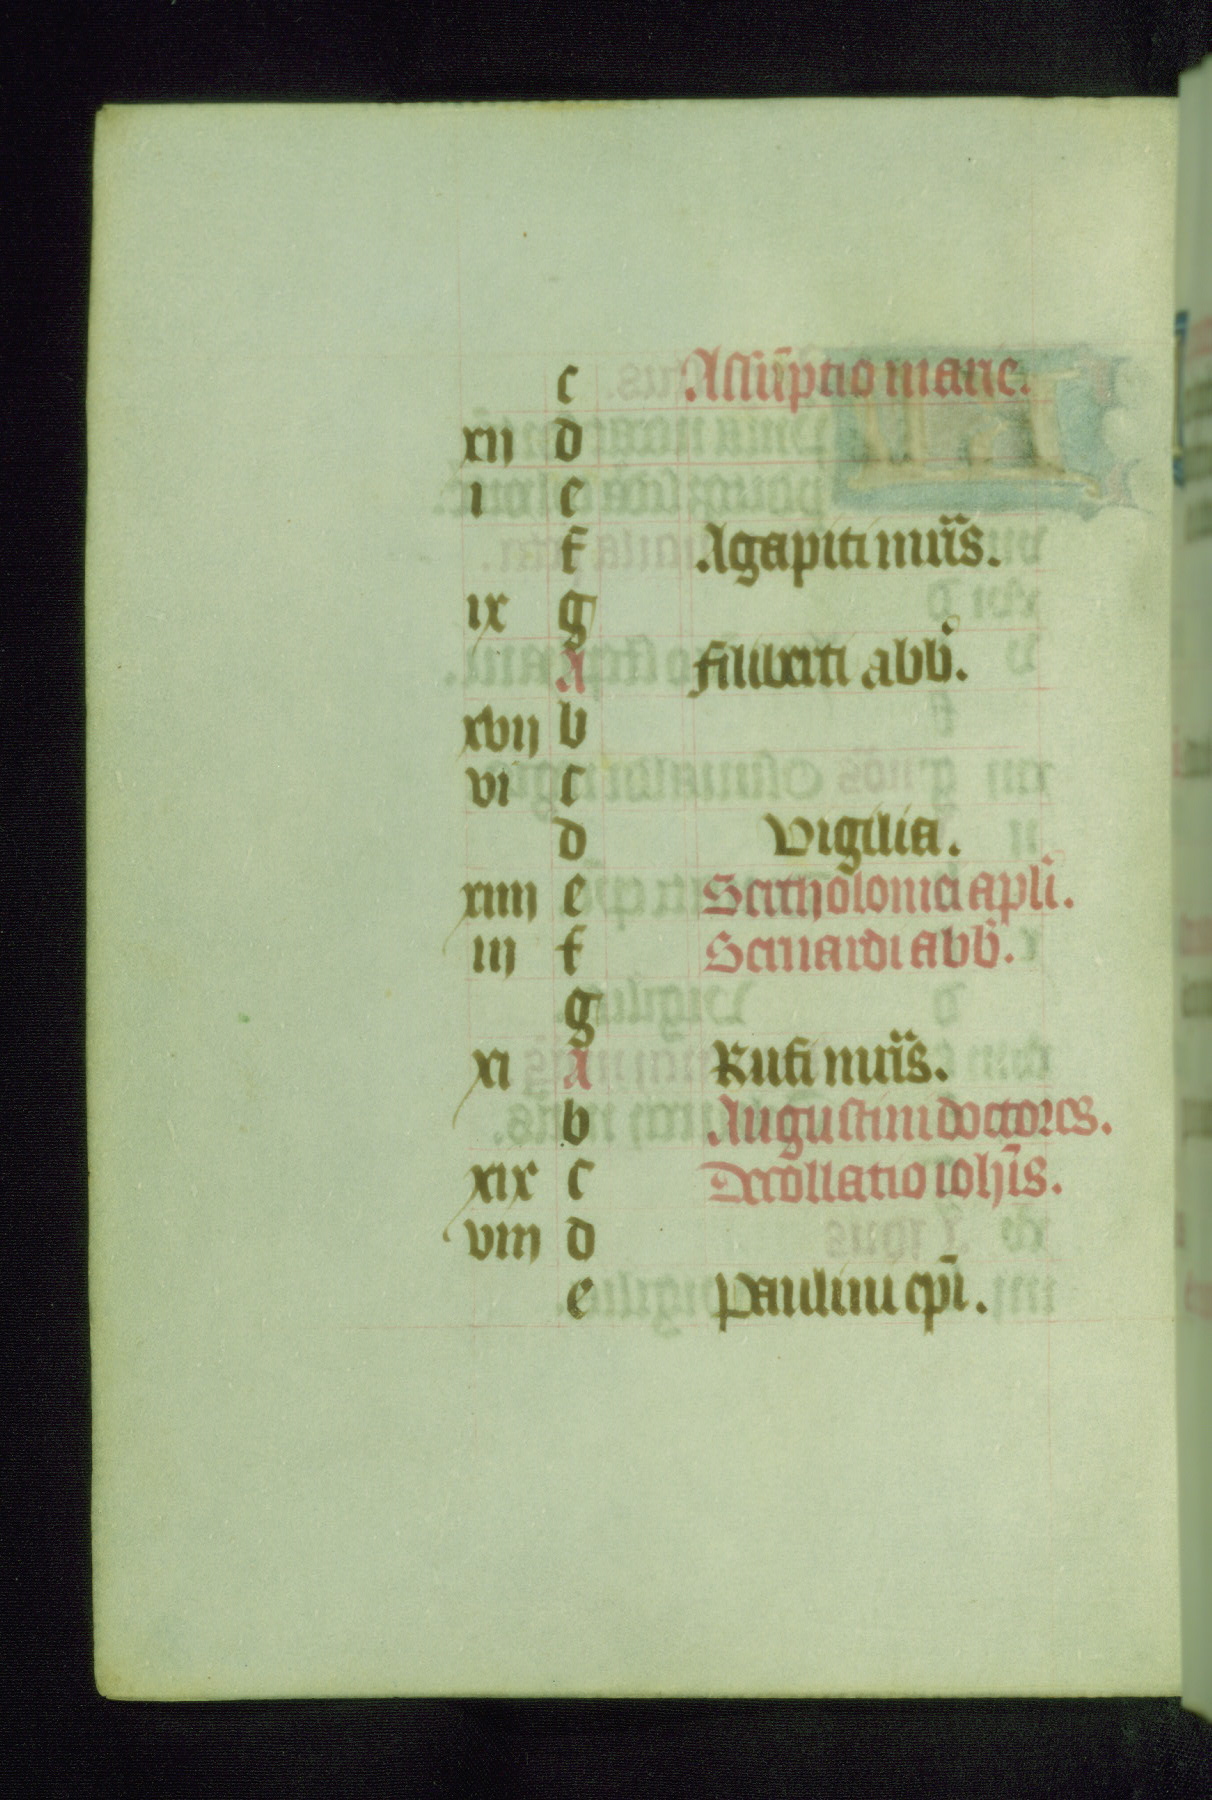 c Assūptio marie.
xij d
j e
f Agapiti mr̄is.
ix g
A filiberti abb̄.
xvij b
vi c
d Vigilia.
xiiij e Bertholomei apl̄i.
iij f Bernardi abb̄.
g
xi A Rufi mr̄is.
b Augustini doctores.
xix c Decollatio ioh̄is.
viij d
e Paulini ep̄i.